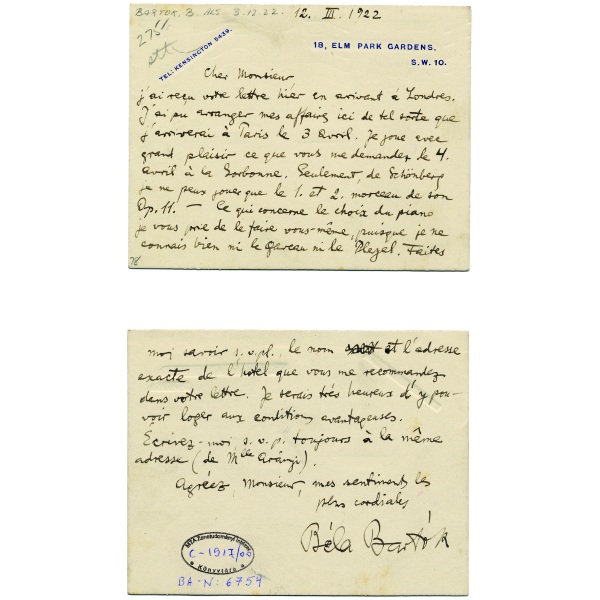 BARTOK, B. ALS 3.12.22. 12. III. 1922
275/1
TEL: KENSINGTON 8439.
18, ELM PARK GARDENS.
S.W. 10.
Cher Monsieur
j'ai reçu votre lettre hier en arivant à Londres.
J'ai pu arranger mes affaires ici de tel sorte que
j'arriverai à Paris le 3 Avril. Je joue avec
grand plaisir ce que vous me demandez le 4.
Avril à la Sorbonne. Seulement, de Schönberg
je ne peux jouer que le 1. et 2. morceau de son
Op. 11. — Ce qui concerne le choix du piano
je vous prie de le faire vous-même, puisque je ne
connais bien ni le Gaveau ni le Pleyel. Faites
78
moi savoir s.v.pl. le nom et l'adresse
exacte de l'hotel que vous me recommandez
dans votre lettre. Je serais très heureux d'y pou-
voir loger aux conditions avantageuses.
Écrivez-moi s.v.p. toujours à la même
adresse (de Mlle Arányi).
Agréez, Monsieur, mes sentiments les
plus cordiales
Béla Bartók
MTA Zenetudományi Intézet
C-1917/00
Könyvtára
BA-N: 6754